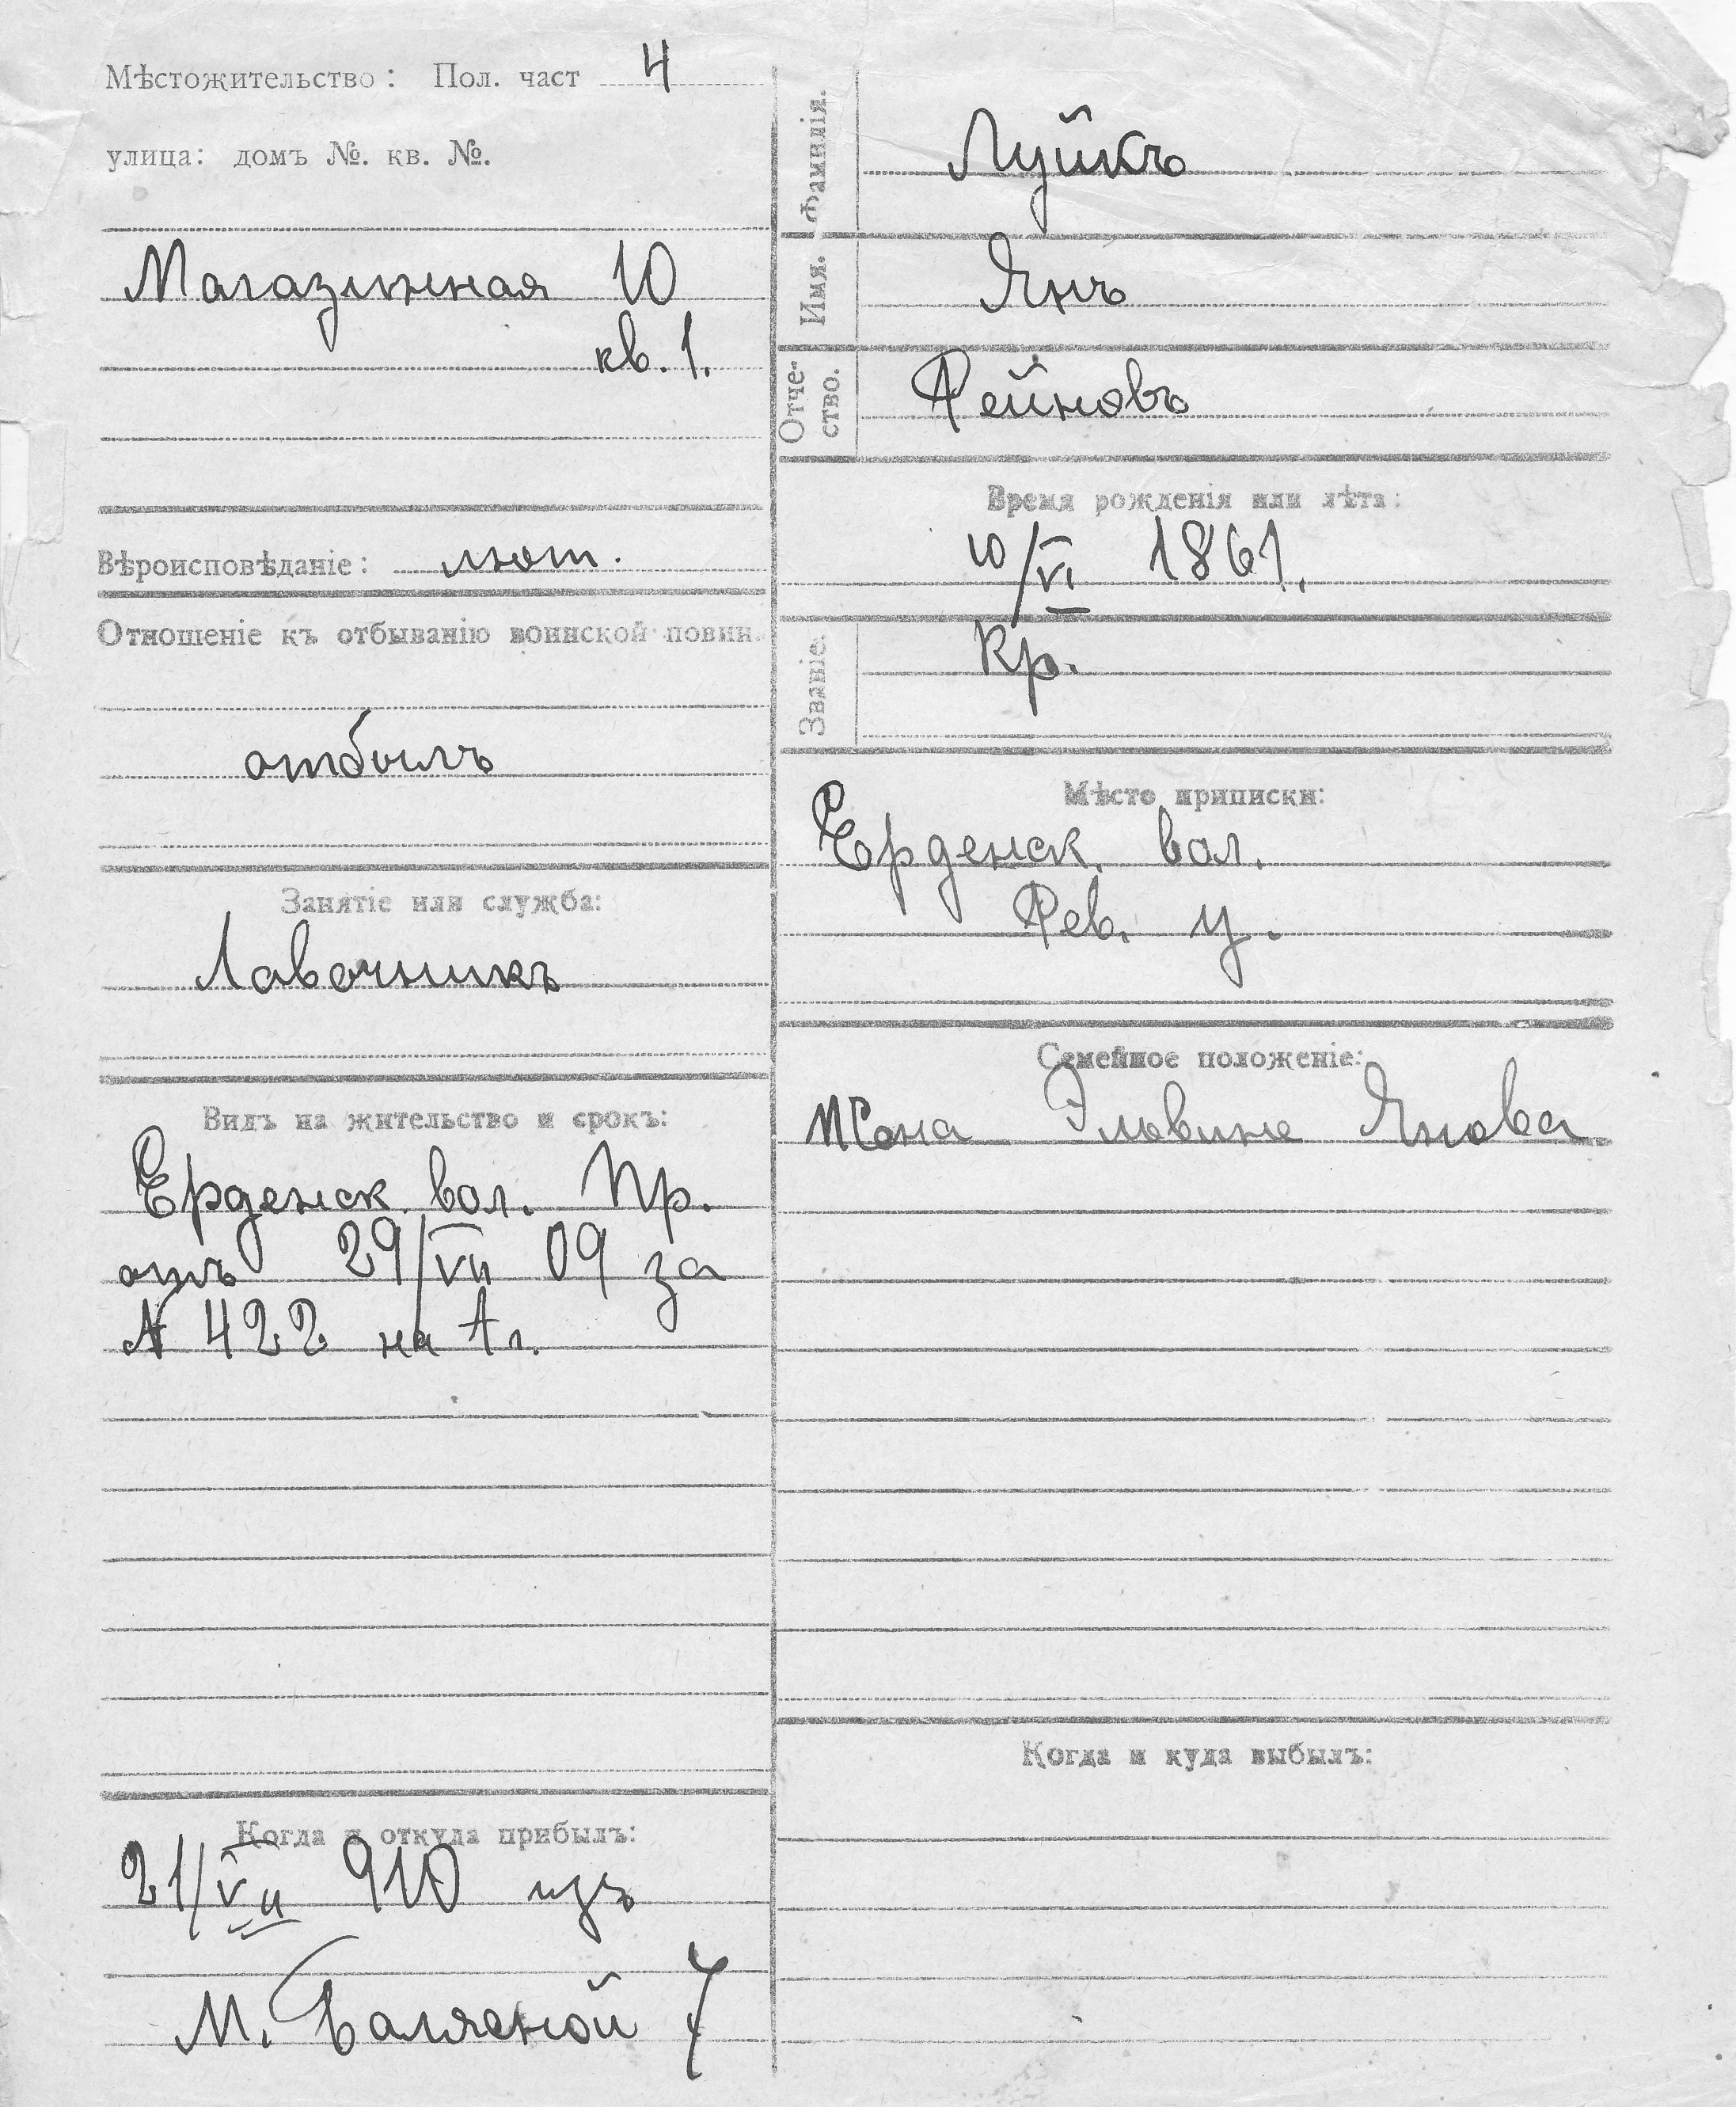 Мѣстожительство: Пол. част 4
улица: домъ №. кв. №.
Магазинная 10
кв. 1.
Вѣроисповѣданіе: лют.
Отношеніе къ отбыванію воинской повин.
отбылъ
Занятіе или служба:
Лавочникъ
Видъ на жительство и срокъ:
Ерденск. вол. Пр.
отъ 29/VII 09 за
№ 422 на 1 г.
Когда и откуда прибылъ:
21/VII 910 изъ
М. Балясной 4
Фамилія. Луйкъ
Имя. Янъ
Отче-
ство. Рейновъ
Время рожденія или лѣта:
10/VI 1861.
Званіе. Кр.
Мѣсто приписки:
Ерденск. вол.
Рев. у.
Семейное положеніе:
Жена Янова
Когда и куда выбылъ: